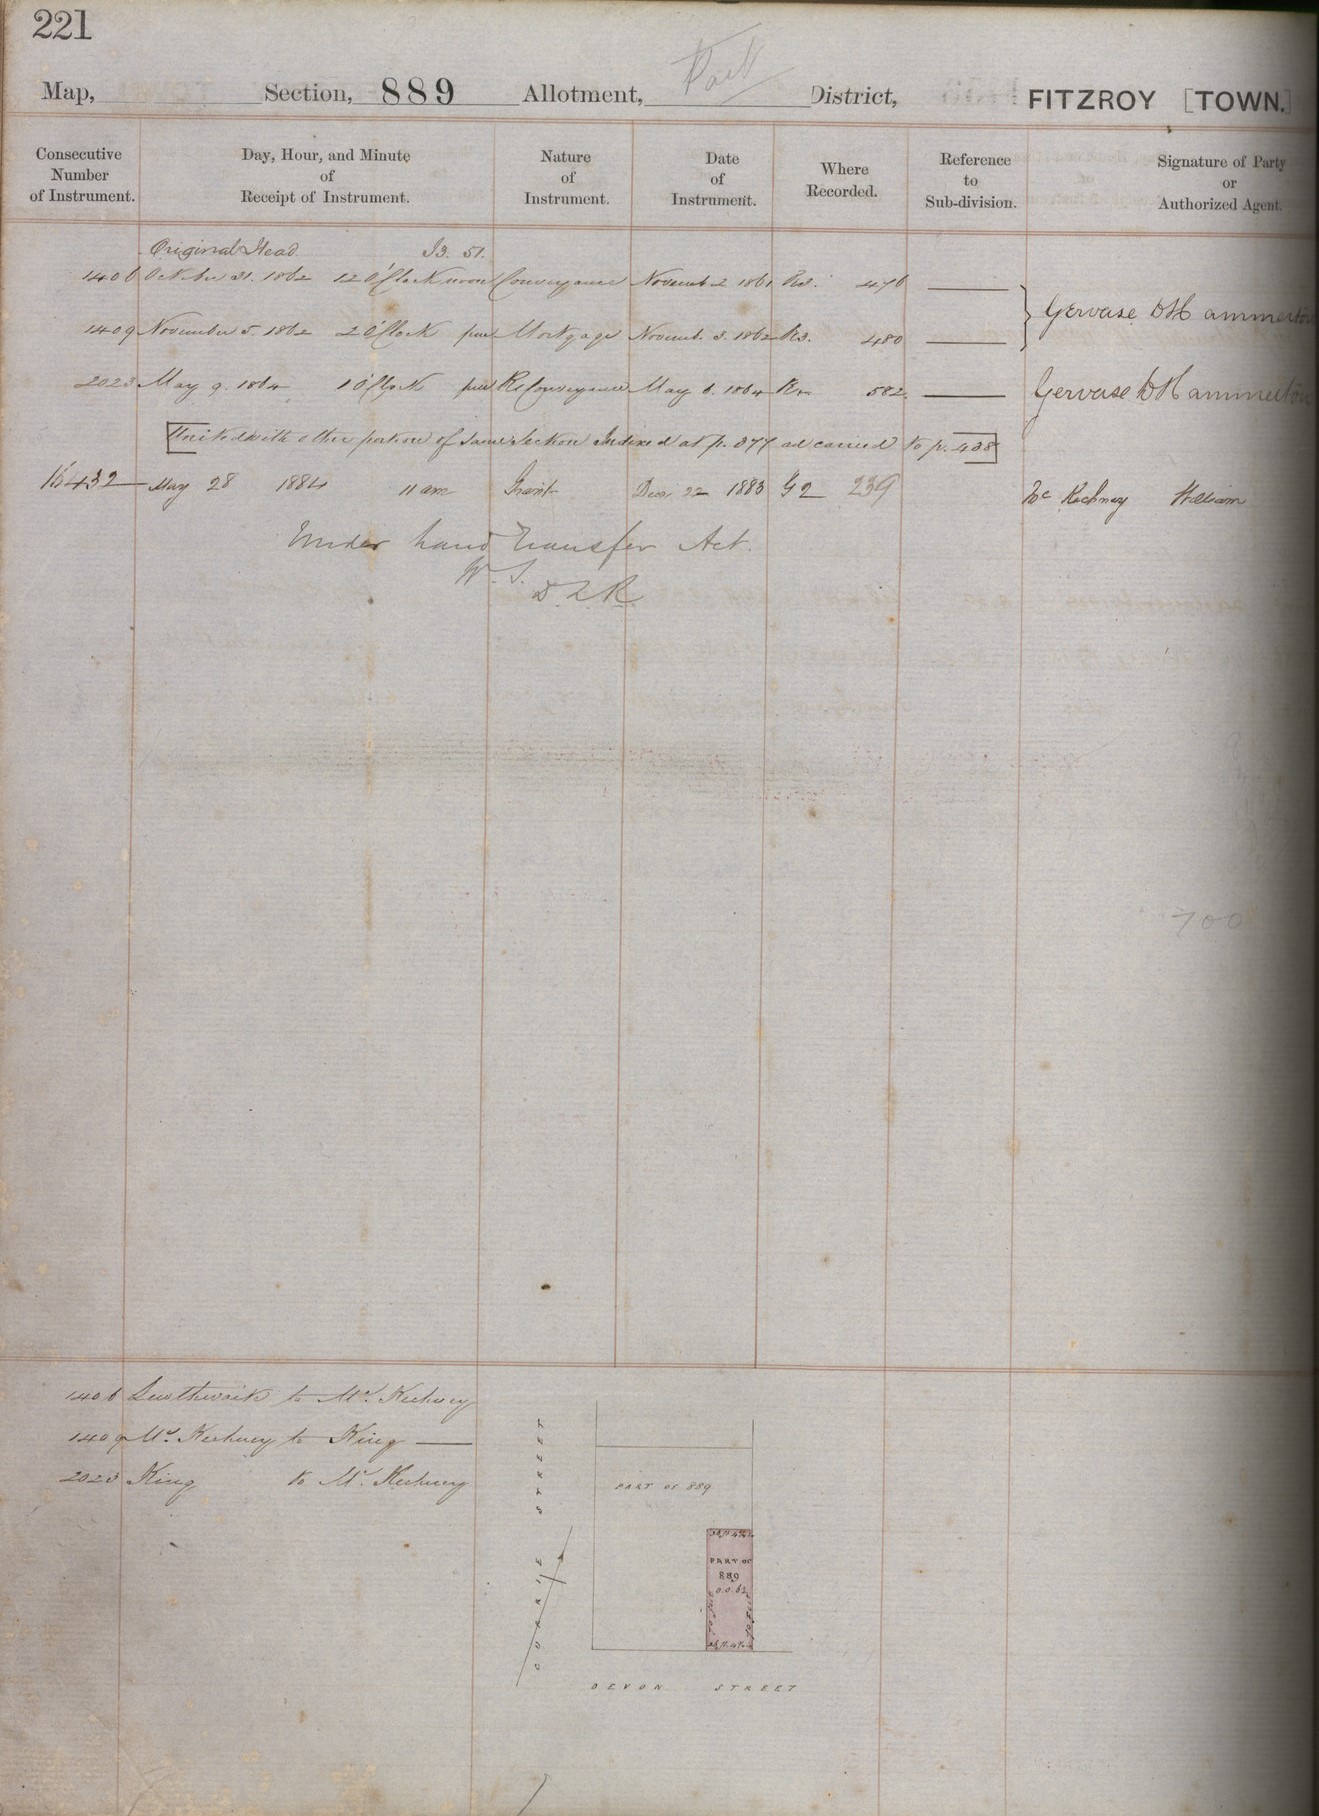 221
Map, Section, 889 Allotment, Part District, FITZROY [TOWN.]
Consecutive Number of Instrument.
Day, Hour, and Minute of Receipt of Instrument.
Nature of Instrument.
Date of Instrument.
Where Recorded.
Reference to Sub-division.
Signature of Party or Authorized Agent.
Original Head 51.
1406 October 31. 1862 12 O'Clock noon Conveyance Novemb 2 1861 R3. 476
Gervase D Hammerton
1409 November 5. 1862 2 O'Clock pm Mortgage Novemb. 3. 1862 R3. 480
2023 May 9. 1864 1 O'Clock pm ReConveyance May 6. 1864 582. Gervase D Hammerton
United with other portion of same Section Indexed at p. 377 and carried to p. 438
16432 May 28 1884 11 am Grant Decr 22 1883 G2 239 Mc Kechney William
Under Land Transfer Act.
W. S.
D L R
700
1406 to Mc. Kechney
1409 Mc. Kechney to King
2023 King to Mc. Kechney
CORRIE STREET
PART OF 889
PART OF
889
0.0.62
DEVON STREET